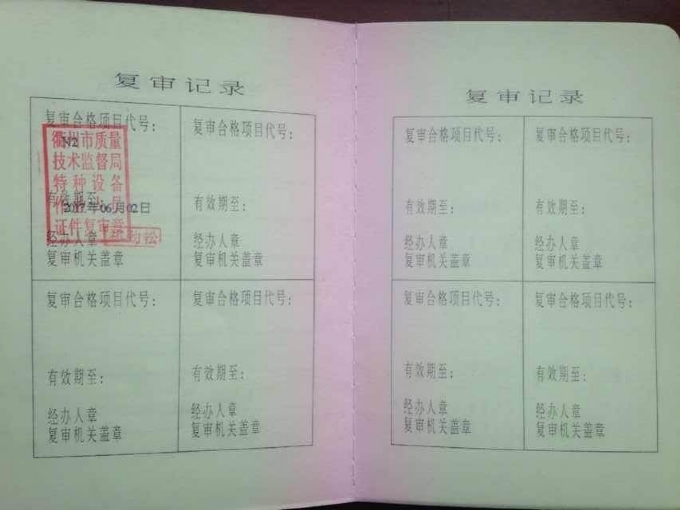 复审记录
复审合格项目代号：
N2
衢州市质量
技术监督局
特种设备
有效期至：
2017年06月02日
证件复审章
经办人章
复审机关盖章
复审合格项目代号：
有效期至：
经办人章
复审机关盖章
复审合格项目代号：
有效期至：
经办人章
复审机关盖章
复审合格项目代号：
有效期至：
经办人章
复审机关盖章
复审记录
复审合格项目代号：
有效期至：
经办人章
复审机关盖章
复审合格项目代号：
有效期至：
经办人章
复审机关盖章
复审合格项目代号：
有效期至：
经办人章
复审机关盖章
复审合格项目代号：
有效期至：
经办人章
复审机关盖章